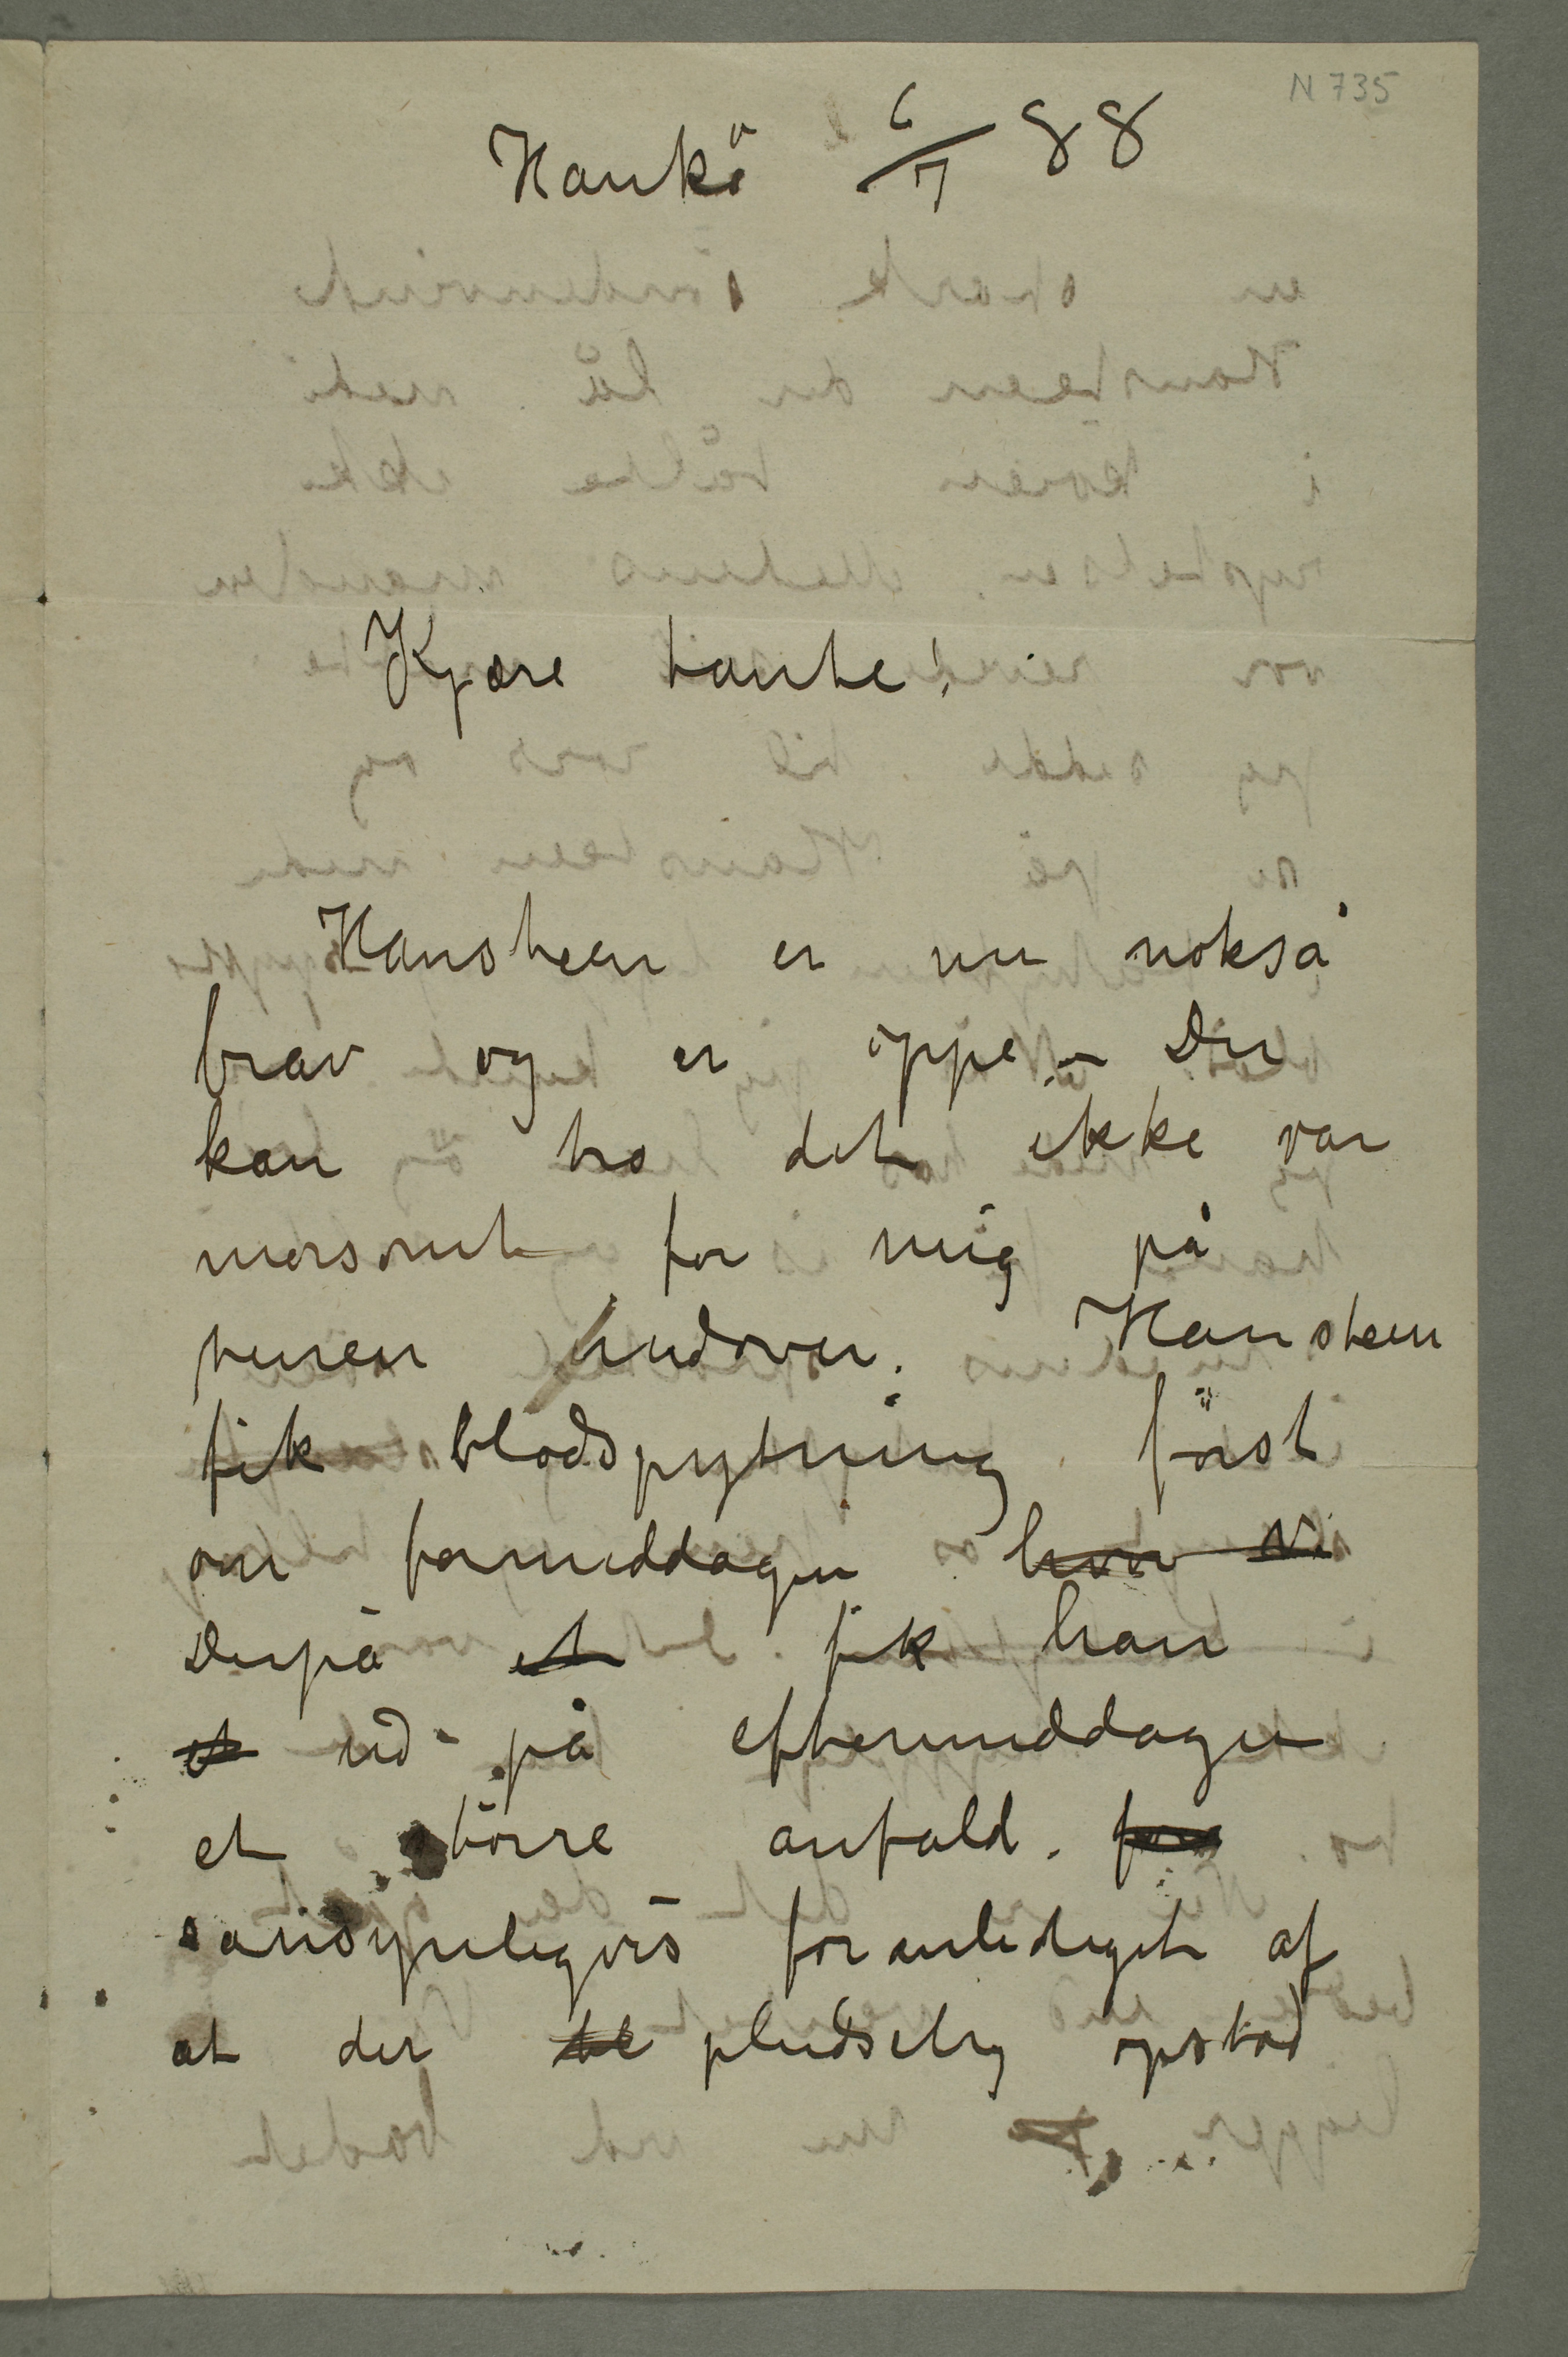 N 735
Hankö 6/7 88
Kjære tante!
Hansteen er nu nokså
brav og er oppe. – Du
kan tro det ikke var
morsomt for mig på
turen hudover. Hansteen
fik blodspytning först
om formiddagen hvor vi
Derpå et fik han
et ud på eftermiddagen
et större anfald. for
sandsynligvis foranlediget af
at der bl pludselig opstod